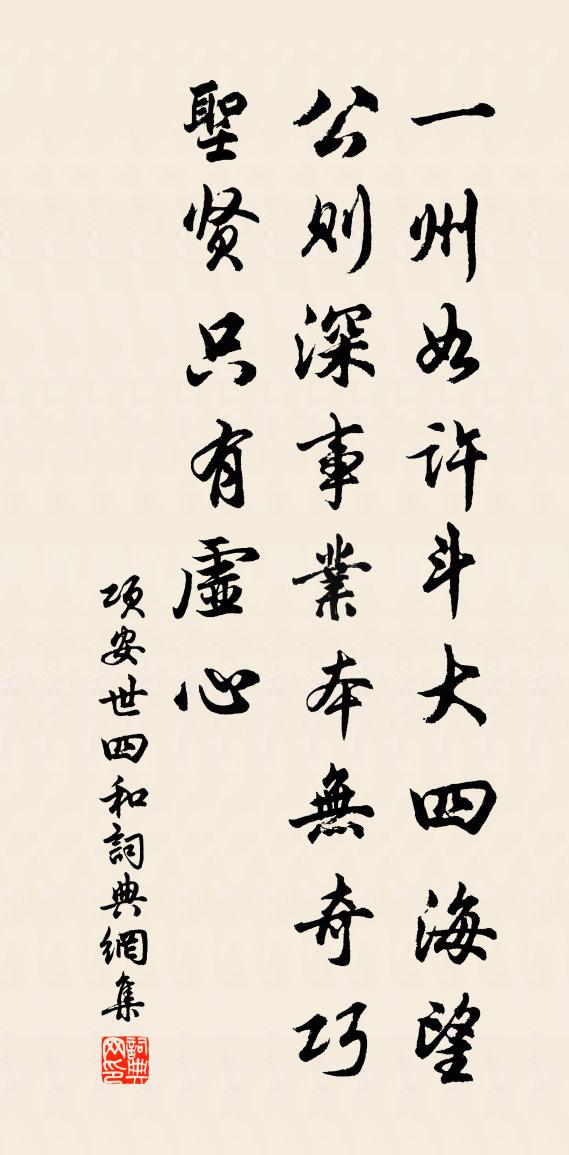 一州如許斗大四海望
公则深事業本無奇巧
聖贤只有虛心
项安世四和詞典網集
詞典网印